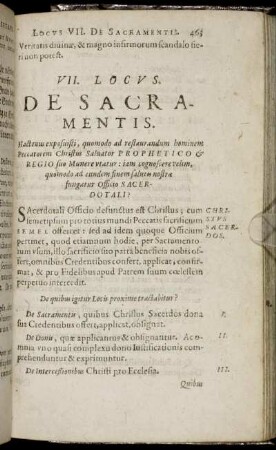 LOCVS VII. DE SACRAMENTIS. 463
Veritatis divinæ, & magno infirmorum scandalo fie-
ri non potest.
VII. LOCVS.
DE SACRA-
MENTIS.
Hactenus exposuisti, quomodo ad restaurandum hominem
Peccatorem Christus Salvator PROPHETICO &
REGIO suo Munere utatur: iam cognoscere velim,
quomodo ad eundem finem salutis nostræ
fungatur Officio SACER-
DOTALI?
SAcerdotali Officio defunctus est Christus; cum
semetipsum pro totius mundi Peccatis sacrificium
SEMEL offerret: sed ad idem quoque Officium
pertinet, quod etiamnum hodie, per Sacramento-
rum vsum, illo sacrificio suo parta beneficia nobis of-
fert, omnibus Credentibus confert, applicat, confir-
mat, & pro Fidelibus apud Patrem suum cœlestem
perpetuo intercedit.
CHRI-
STVS
SACER-
DOS.
De quibus igitur Locis proxime tractabitur?
De Sacramentis, quibus Christus Sacerdos dona
sua Credentibus offert, applicat, obsignat.
I.
De Donis, quæ applicantur & obsignantur. Ac om-
nia vno quasi complexu dono Iustificationis com-
prehenduntur & exprimuntur.
II.
De Intercessionibus Christi pro Ecclesia.
III.
Quibus